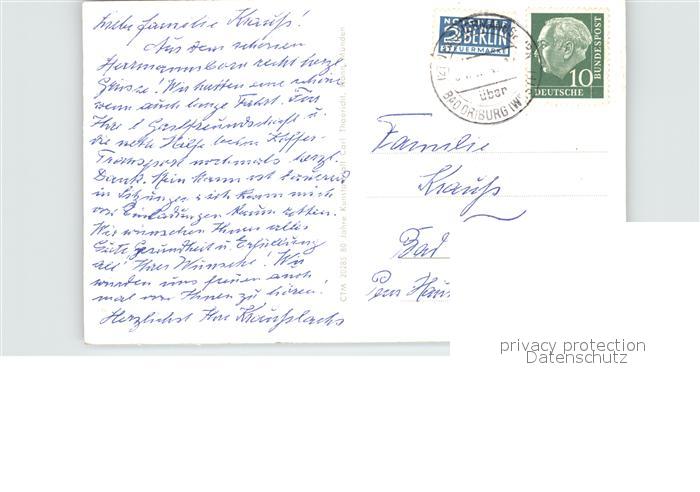 Liebe Familie Krauß!
Aus dem schönen
Herrmannsborn recht herzl.
Grüsse! Wir hatten eine schöne
wenn auch lange Fahrt. Für
Ihre l. Gastfreundschaft u.
die nette Hilfe beim Koffer-
Transport nochmals herzl.
Dank. Mein Mann ist dauernd
in Sitzungen u. ich kann mich
vor Einladungen kaum retten.
Wir wünschen Ihnen alles
Gute, Gesundheit u. Erfüllung
all' Ihrer Wünsche! Wir
würden uns freuen auch
mal von Ihnen zu hören!
Herzlichst Ihre
CTM 20285 80 Jahre Kunstanstalt Carl Thoericht, Hann. Münden
NOTOPFER
2 BERLIN
STEUERMARKE
über
BAD DRIBURG (WESTF)
10
DEUTSCHE
BUNDESPOST
Familie
Krauß
Bad
privacy protection
Datenschutz